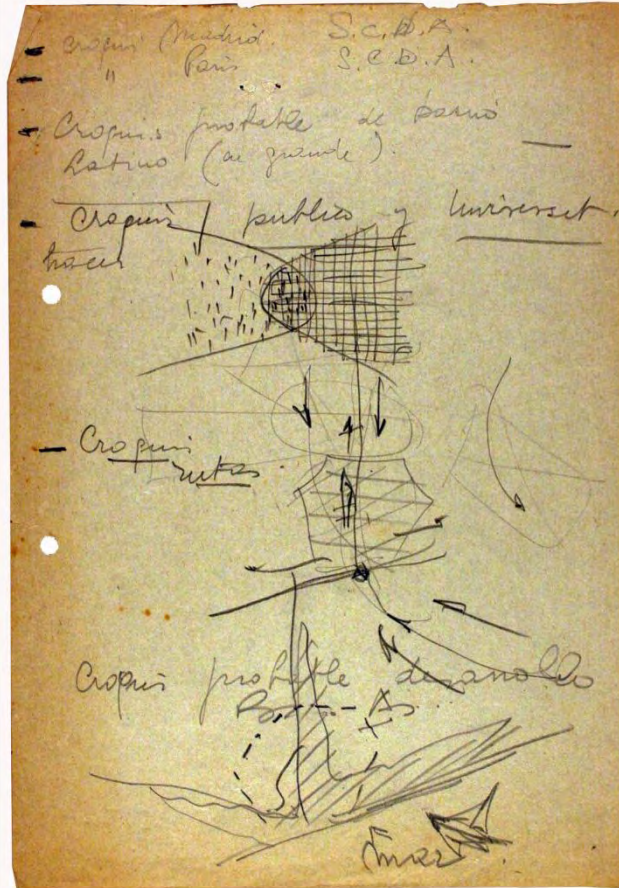 croquis Madrid. S.C.D.A.
" Paris S.C.D.A.
Croquis probable de barrio
Latino (de grande).
Croquis publico y
hacer
Croquis
rutas
Croquis probable desarrollo
Bs. As.
mar